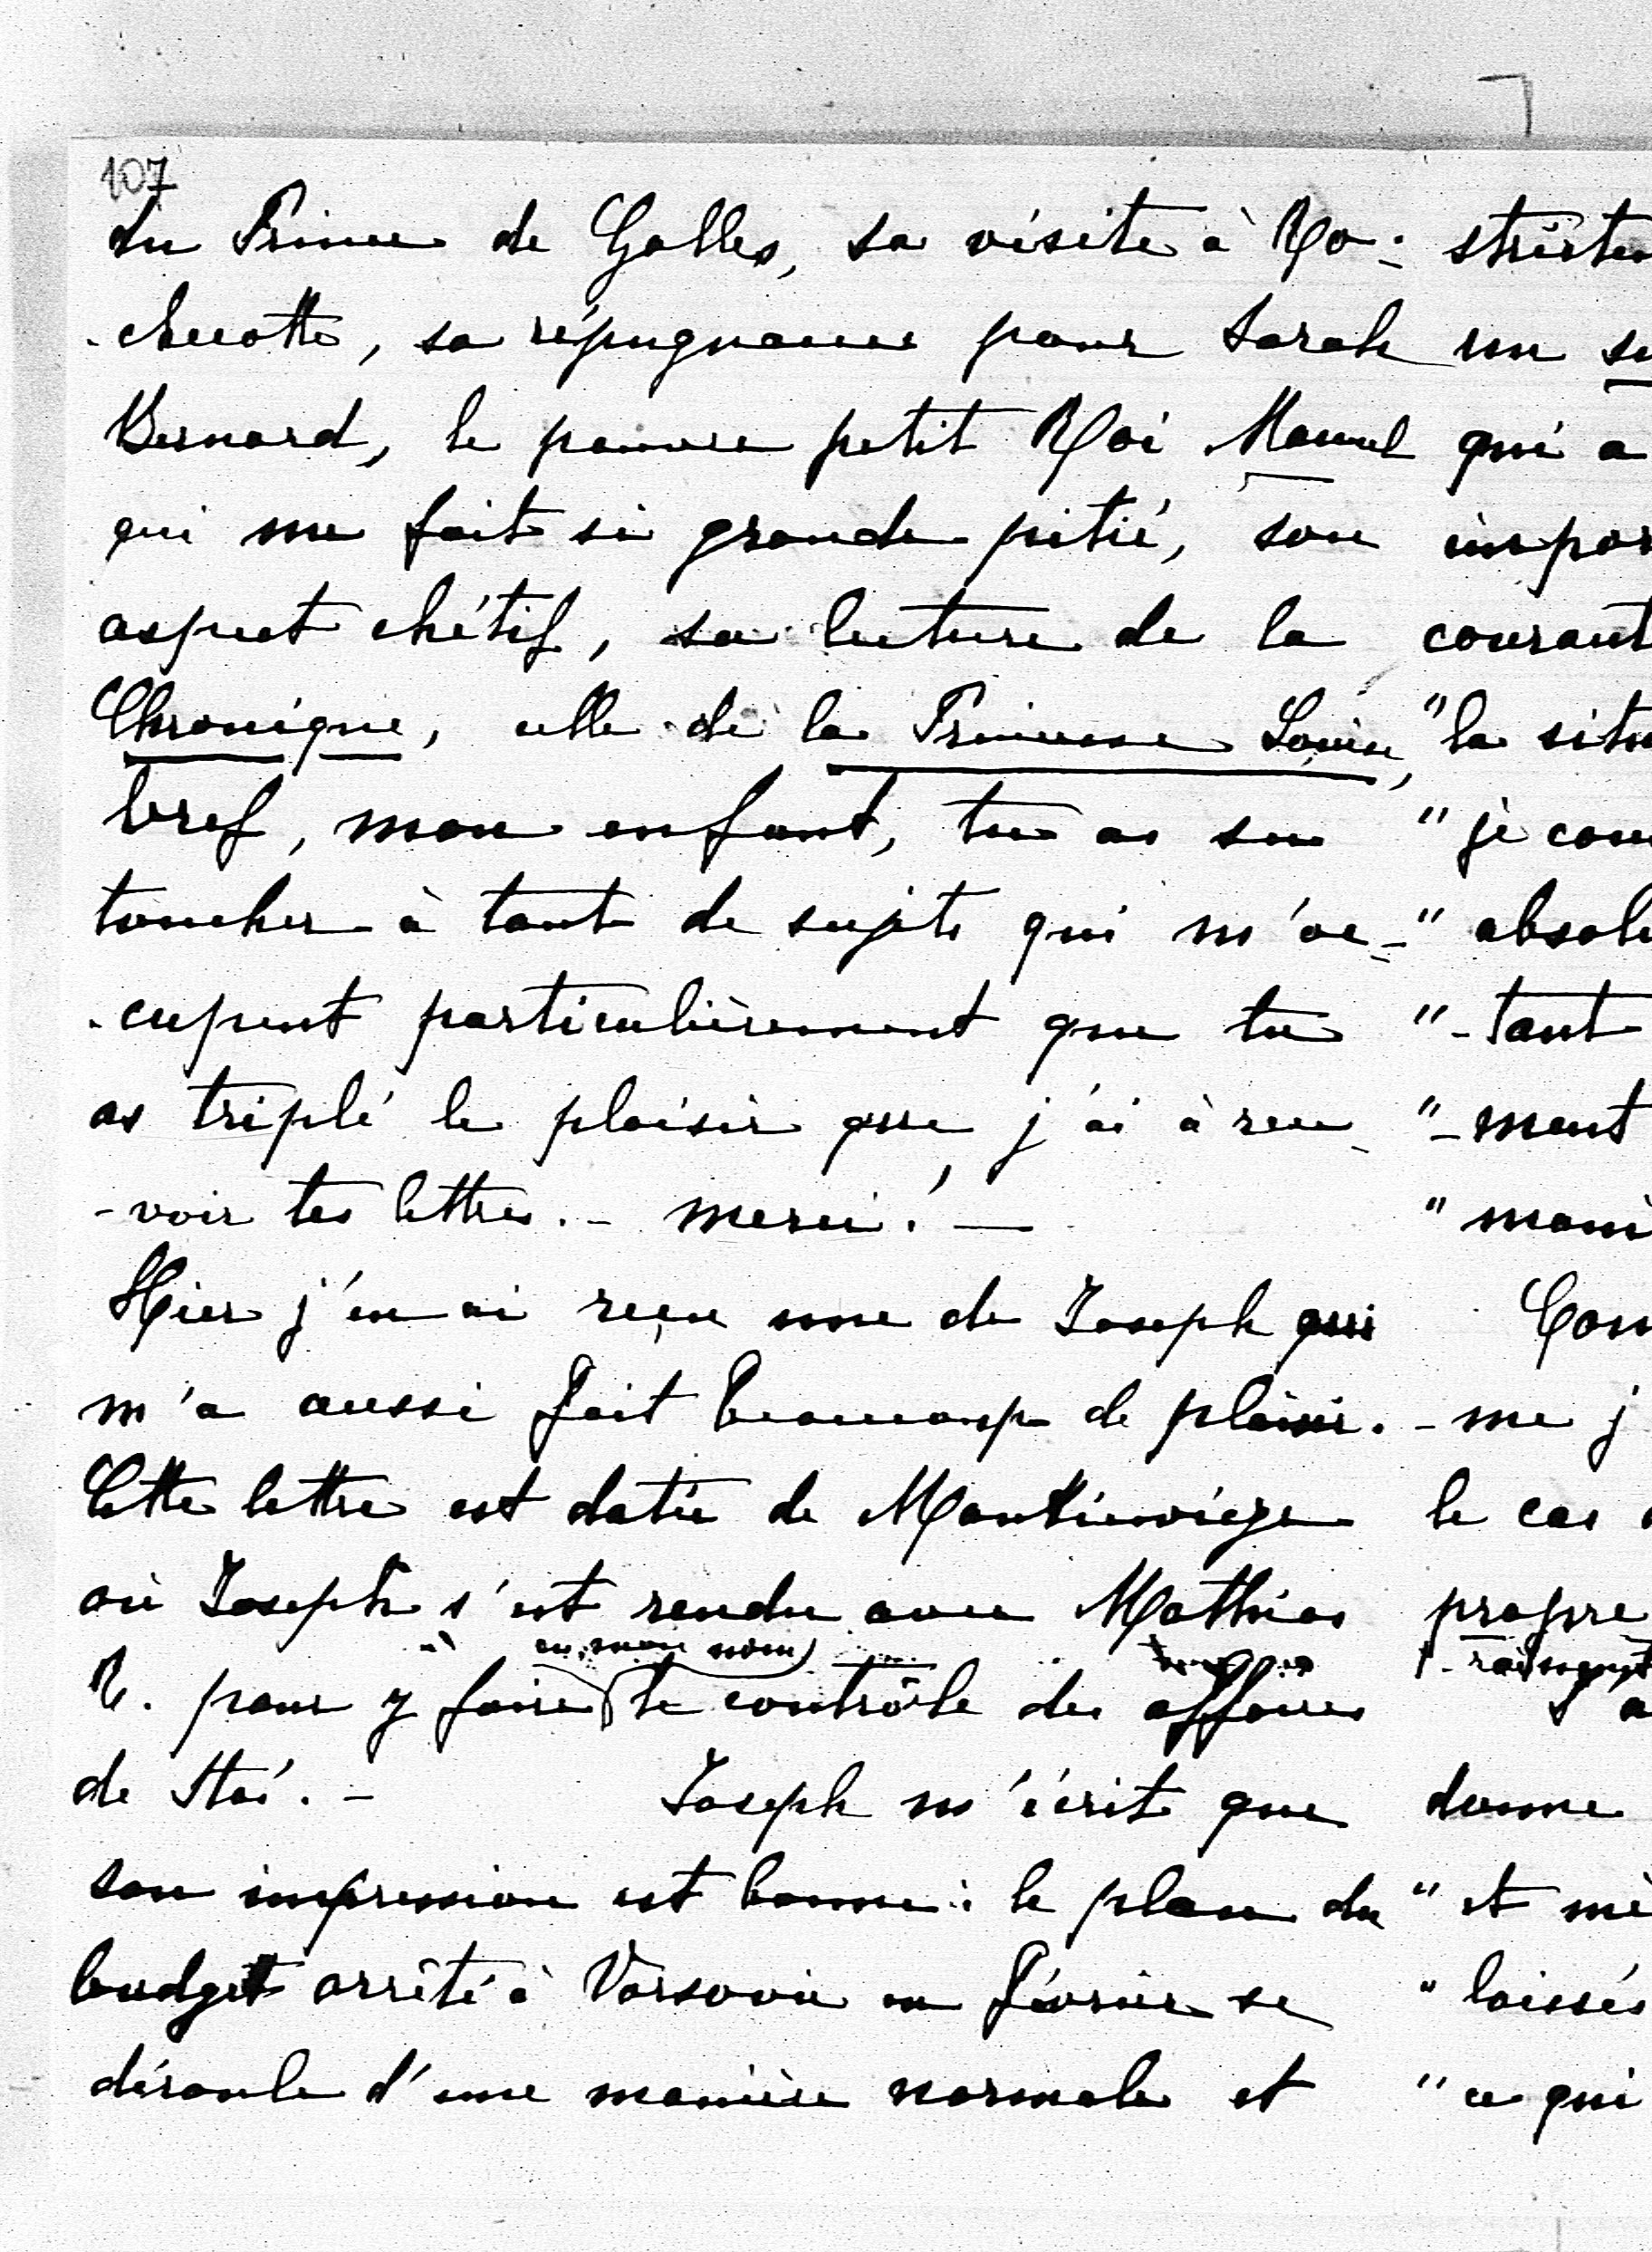 107
du Prince de Galles, sa visite à Ro-
-checotte, sa répugnance pour Sarah
Bernard, le pauvre petit Roi Manuel
qui me fait si grande pitié, son
aspect chétif, sa lecture de la
Chronique, celle de la Princesse Louise,
bref, mon enfant, tu as su
toucher à tant de sujets qui m'oc-
-cupent particulièrement que tu
as triplé le plaisir que j'ai à rece-
-voir tes lettres. - merci! -
Hier j'en ai reçu une de Joseph qui
m'a aussi fait beaucoup de plaisir.
Cette lettre est datée de
où Joseph s'est rendu avec Mathias
en mon nom
R. pour y faire le contrôle des affaires
de Staś. - Joseph m'écrit que
son impression est bonne: le plan du
budget arrêté à Varsovie en Février se
déroule d'une manière normale et
un
qui a
courant
"la situ
"je
"absolu
"-tant
"-ment
"
-me j
le cas
propre
donne
"et mê
"laissés
"ce qui